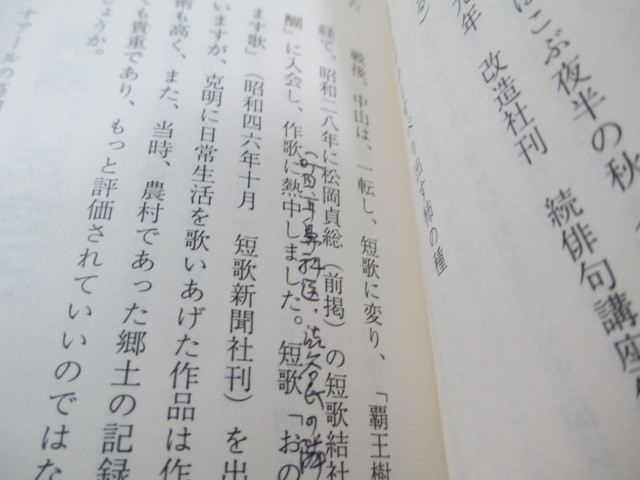 はこぶ夜半の秋
続俳句講座
元年　改造社刊
出す柿の種
戦後、中山は、一転し、短歌に変り、「覇王樹
経て、昭和二八年に松岡貞総（前掲）の短歌結社
（町田耳鼻科医、渋谷氏の隣
醐」に入会し、作歌に熱中しました。短歌「おの
ます歌」（昭和四六年十月　短歌新聞社刊）を出
いますが、克明に日常生活を歌いあげた作品は作
術も高く、また、当時、農村であった郷土の記録
ても貴重であり、もっと評価されていいのではな
しょうか。